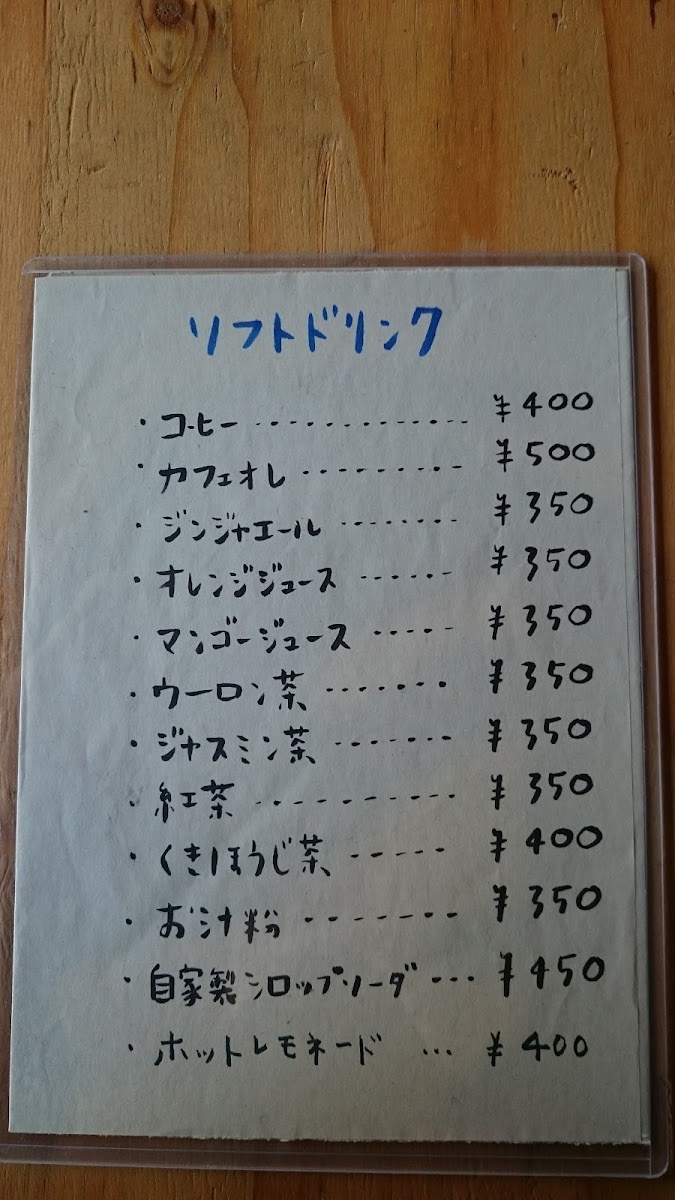 ソフトドリンク
・コーヒー ............. ¥400
・カフェオレ ......... ¥500
・ジンジャエール ....... ¥350
・オレンジジュース ...... ¥350
・マンゴージュース ..... ¥350
・ウーロン茶 ....... ¥350
・ジャスミン茶 ....... ¥350
・紅茶 ........... ¥350
・くきほうじ茶 ..... ¥400
・お汁粉 ....... ¥350
・自家製シロップソーダ ... ¥450
・ホットレモネード ... ¥400